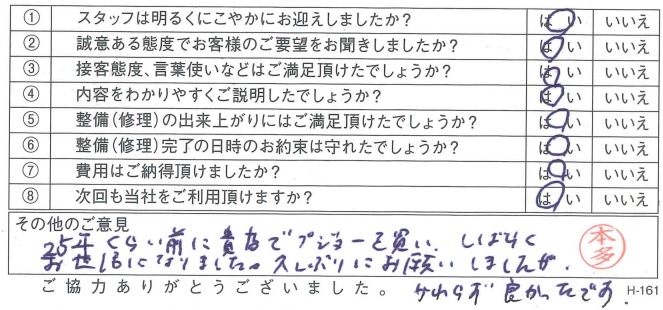 ① スタッフは明るくにこやかにお迎えしましたか? はい いいえ
② 誠意ある態度でお客様のご要望をお聞きしましたか? はい いいえ
③ 接客態度、言葉使いなどはご満足頂けたでしょうか? はい いいえ
④ 内容をわかりやすくご説明したでしょうか? はい いいえ
⑤ 整備(修理)の出来上がりにはご満足頂けたでしょうか? はい いいえ
⑥ 整備(修理)完了の日時のお約束は守れたでしょうか? はい いいえ
⑦ 費用はご納得頂けましたか? はい いいえ
⑧ 次回も当社をご利用頂けますか? はい いいえ
その他のご意見
25年くらい前に貴店でプジョーを買い、しばらく
お世話になりました。久しぶりにお願いしましたが、
本多
ご協力ありがとうございました。 かわらず良かったです。 H-161